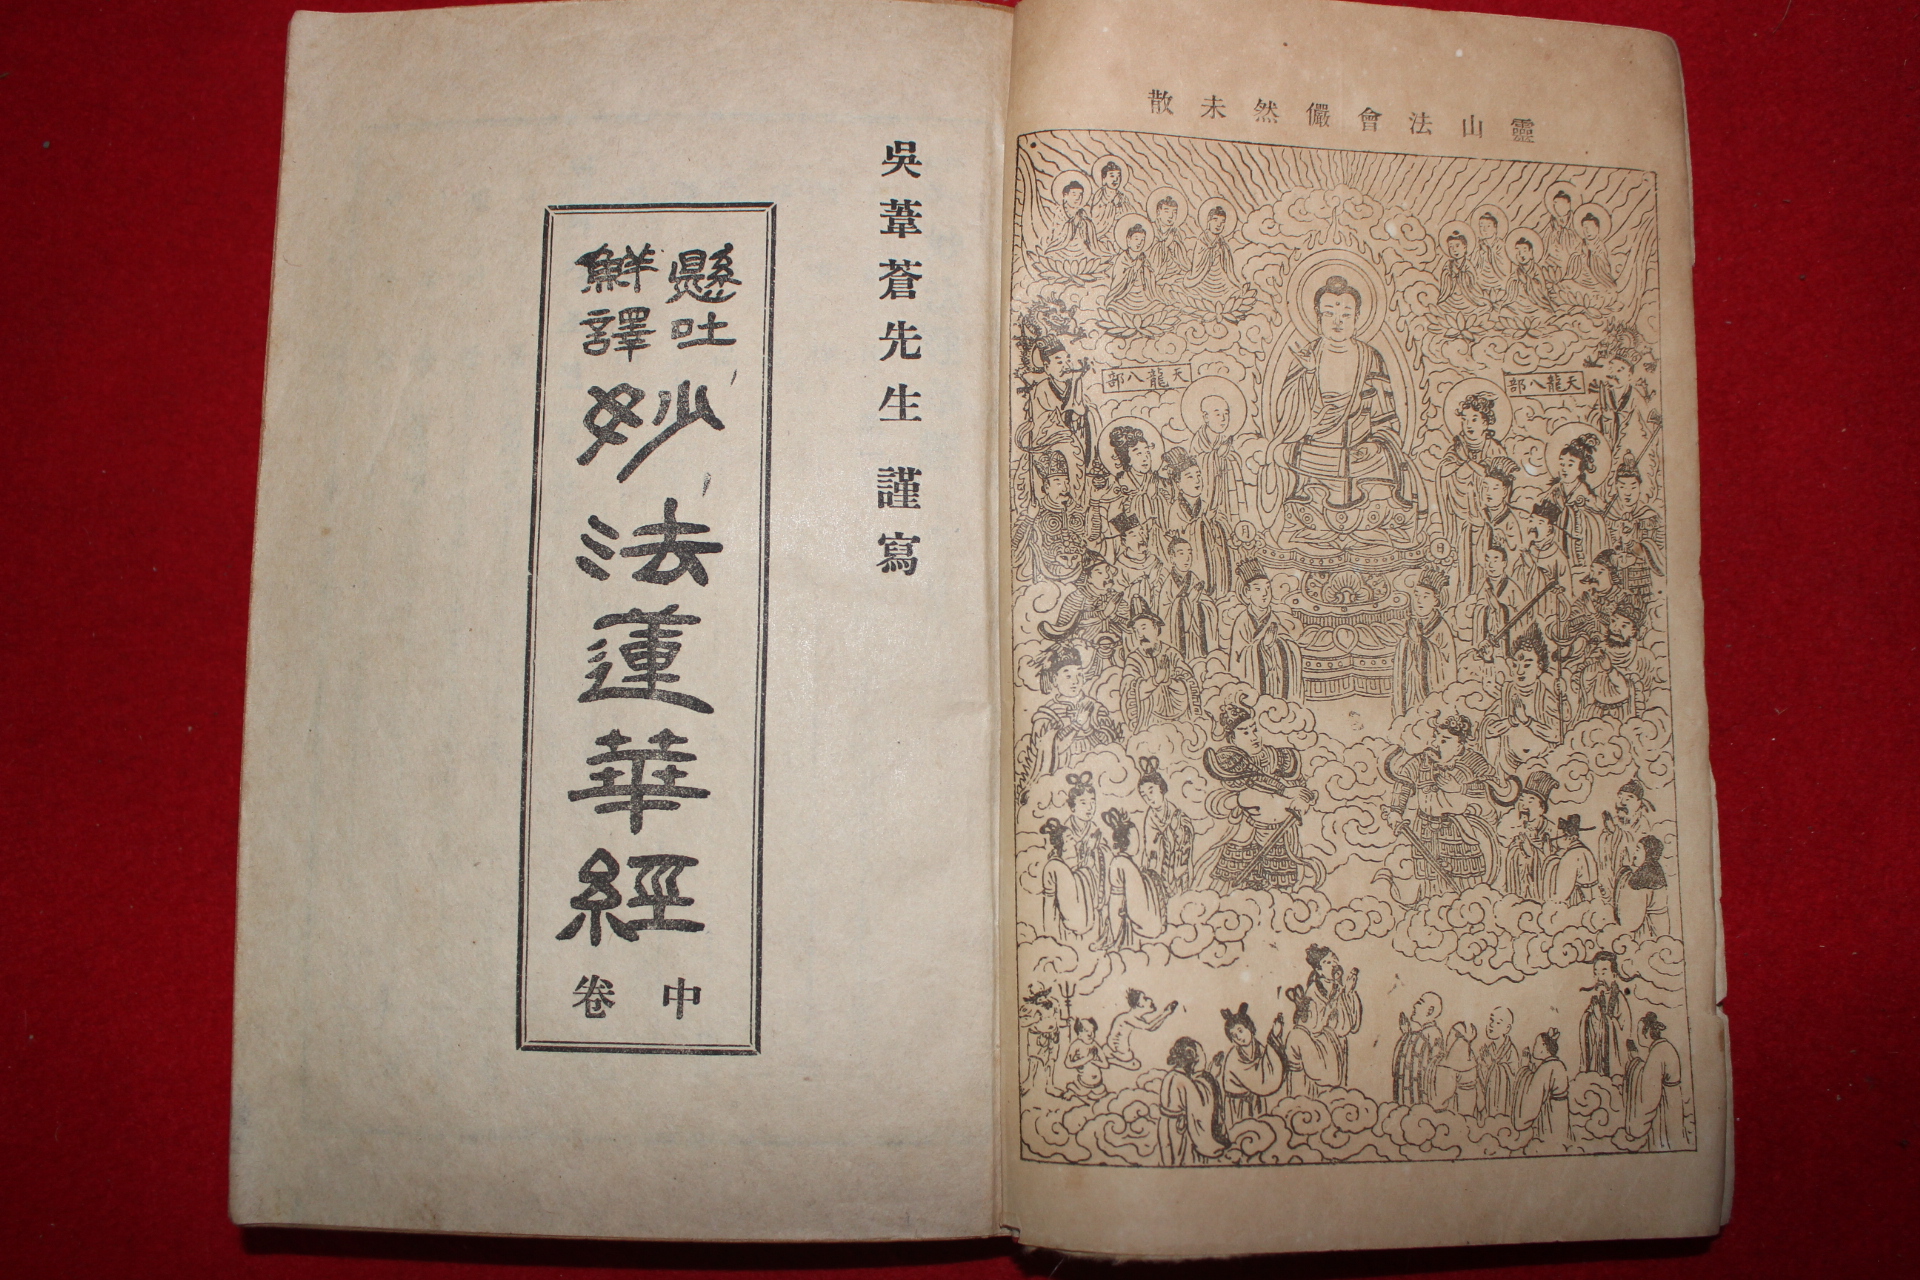 靈山法會儼然未散
天龍八部
天龍八部
日
月
吳葦蒼先生 謹寫
懸吐
鮮譯
妙法蓮華經
中卷